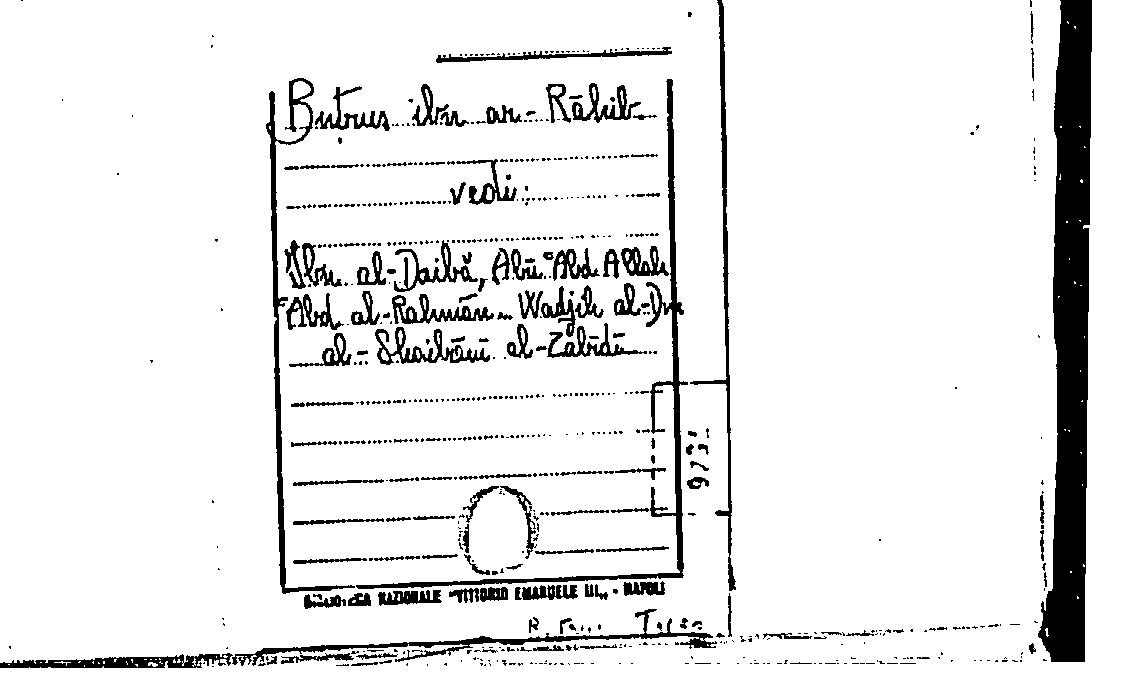 Buṭrus ibn ar-Rāhib
vedi:
Ibn al-Daibă, Abū ʿAbd Allah
ʿAbd al-Rahmān... Wadjih al-Dīn
al-Shaibānī al-Zabīdī
BIBLIOTECA NAZIONALE "VITTORIO EMANUELE III„ - NAPOLI